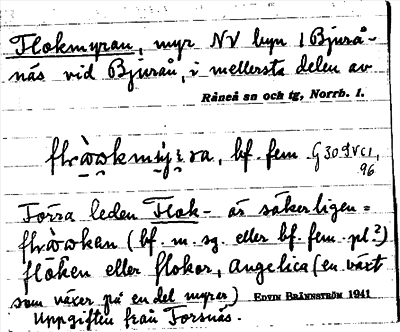 Flokmyran, myr NV byn i Bjurå-
näs vid Bjurån, i mellersta delen av
Råneå sn och tg, Norrb. l.
bf. fem.
96
Förra leden Flok- är säkerligen =
(bf. m. sg. eller bf. fem. pl.?)
flöken eller flokor, Angelica (en växt
som växer på en del myrar) EDVIN BRÄNNSTRÖM 1941
Uppgiften från Forsnäs.